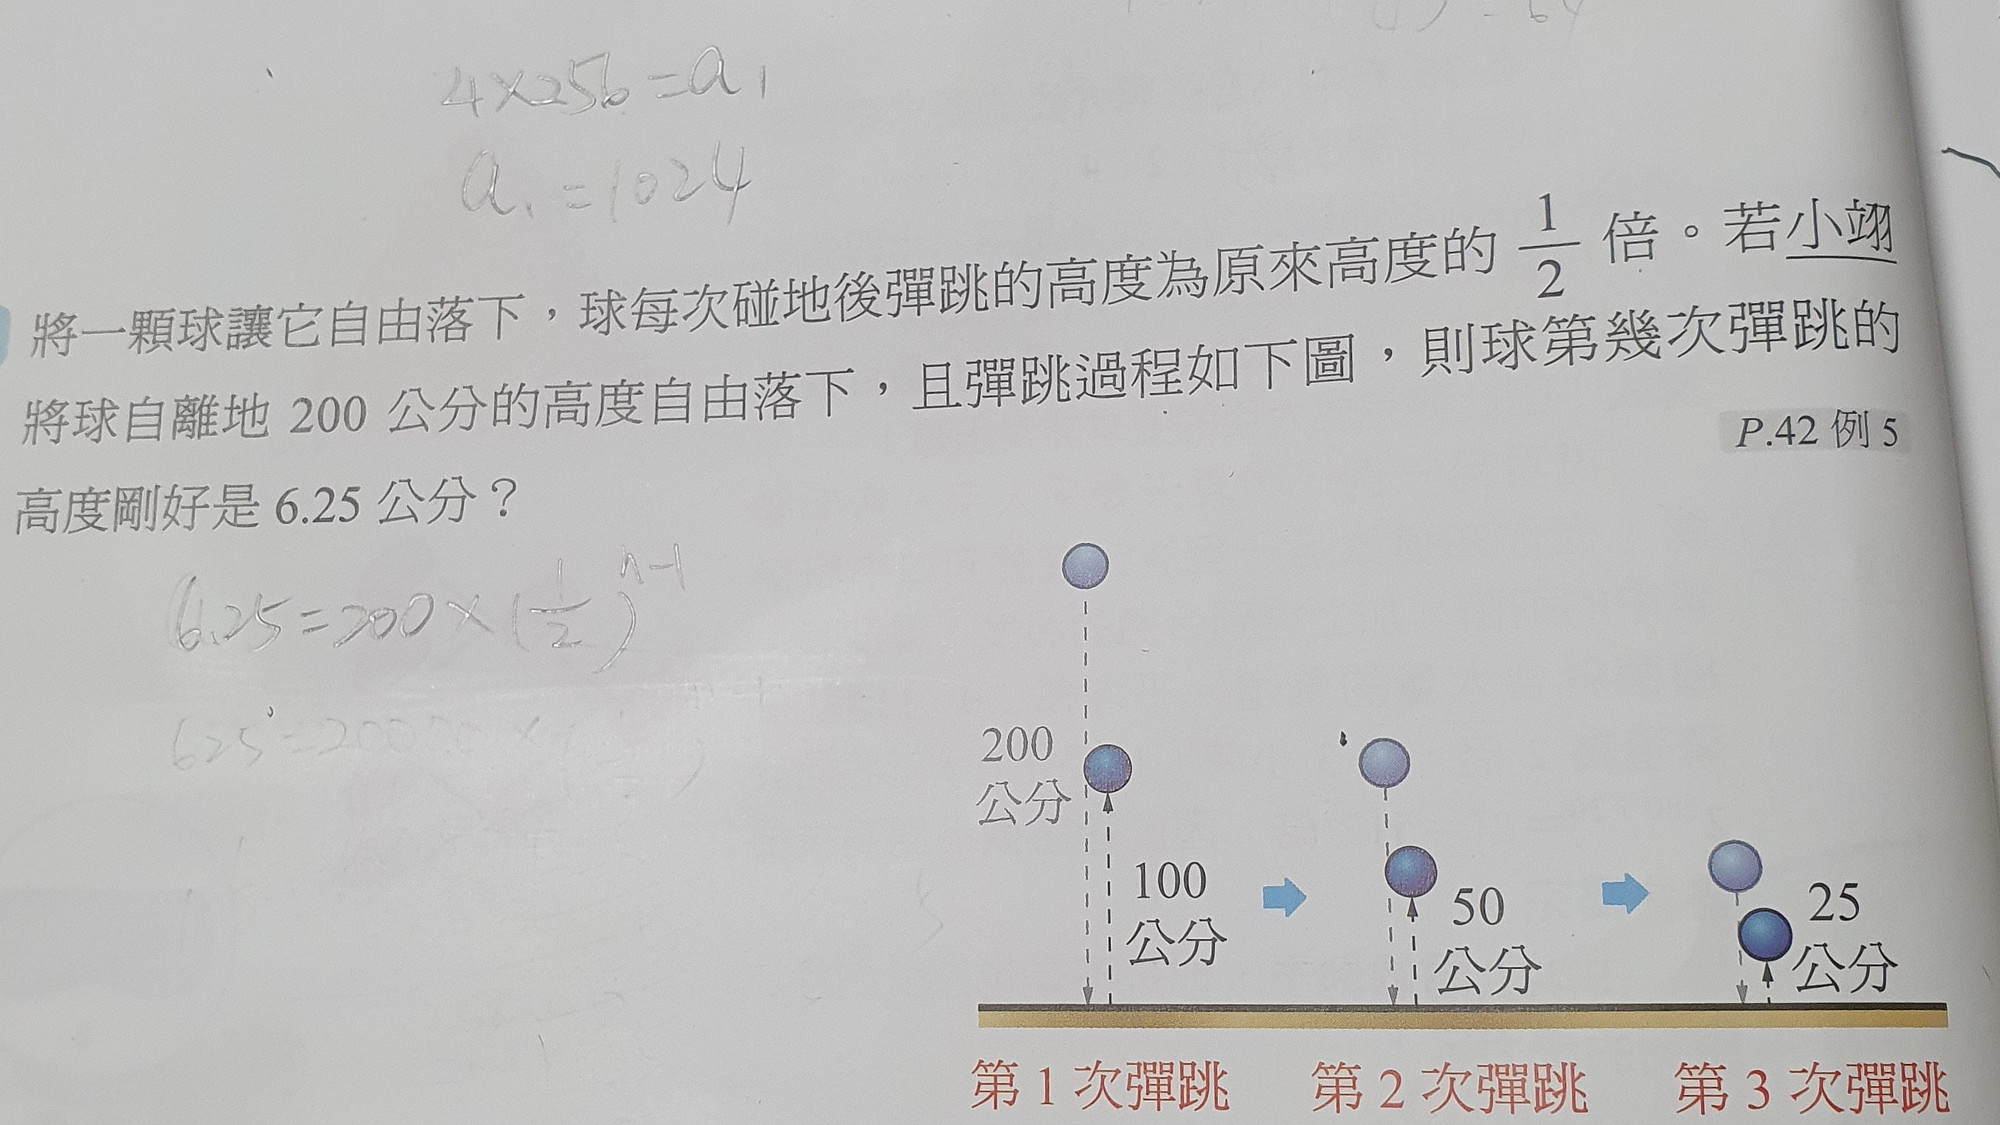 4×256=a1
a1=1024
將一顆球讓它自由落下，球每次碰地後彈跳的高度為原來高度的 1/2 倍。若小翊
將球自離地 200 公分的高度自由落下，且彈跳過程如下圖，則球第幾次彈跳的
高度剛好是 6.25 公分？
P.42 例 5
6.25=200×(1/2)^n-1
200
公分
100
公分
50
公分
25
公分
第 1 次彈跳
第 2 次彈跳
第 3 次彈跳